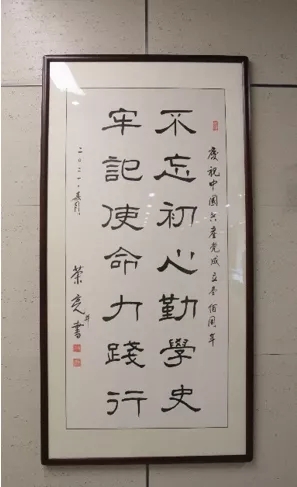 慶祝中國共產党成立壹佰周年
不忘初心勤學史
牢記使命力踐行
二〇二一.春月
榮堯書